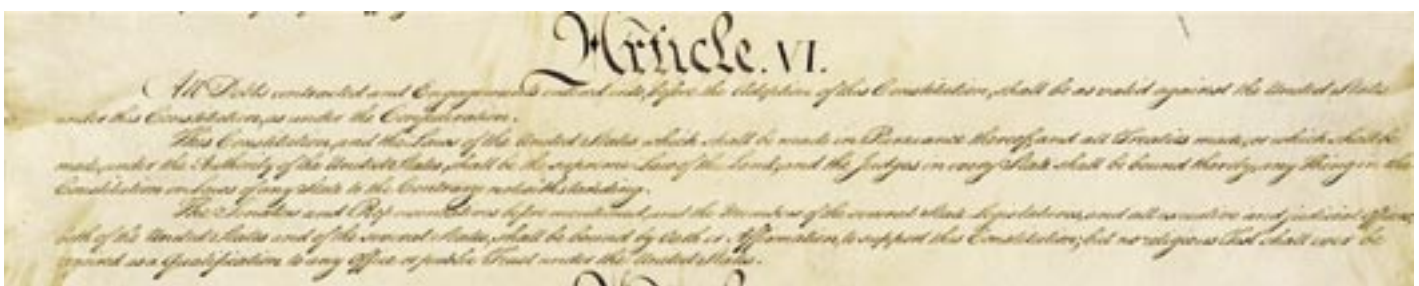 Article. VI.
All Debts contracted and Engagements entered into, before the Adoption of this Constitution, shall be as valid against the United States
under this Constitution, as under the Confederation.
This Constitution, and the Laws of the United States which shall be made in Pursuance thereof; and all Treaties made, or which shall be
made, under the Authority of the United States, shall be the supreme Law of the Land; and the Judges in every State shall be bound thereby, any Thing in the
Constitution or Laws of any State to the Contrary notwithstanding.
The Senators and Representatives before mentioned, and the Members of the several State Legislatures, and all executive and judicial Officers,
both of the United States and of the several States, shall be bound by Oath or Affirmation, to support this Constitution; but no religious Test shall ever be
required as a Qualification to any Office or public Trust under the United States.